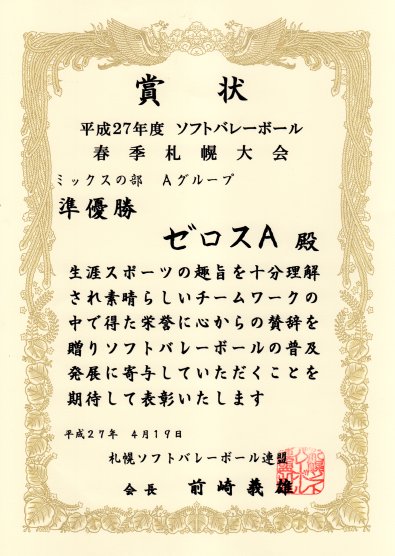 賞状
平成27年度 ソフトバレーボール
春季札幌大会
ミックスの部 Aグループ
準優勝
ゼロスA 殿
生涯スポーツの趣旨を十分理解
され素晴らしいチームワークの
中で得た栄誉に心からの賛辞を
贈りソフトバレーボールの普及
発展に寄与していただくことを
期待して表彰いたします
平成27年 4月19日
札幌ソフトバレーボール連盟
会長 前崎義雄